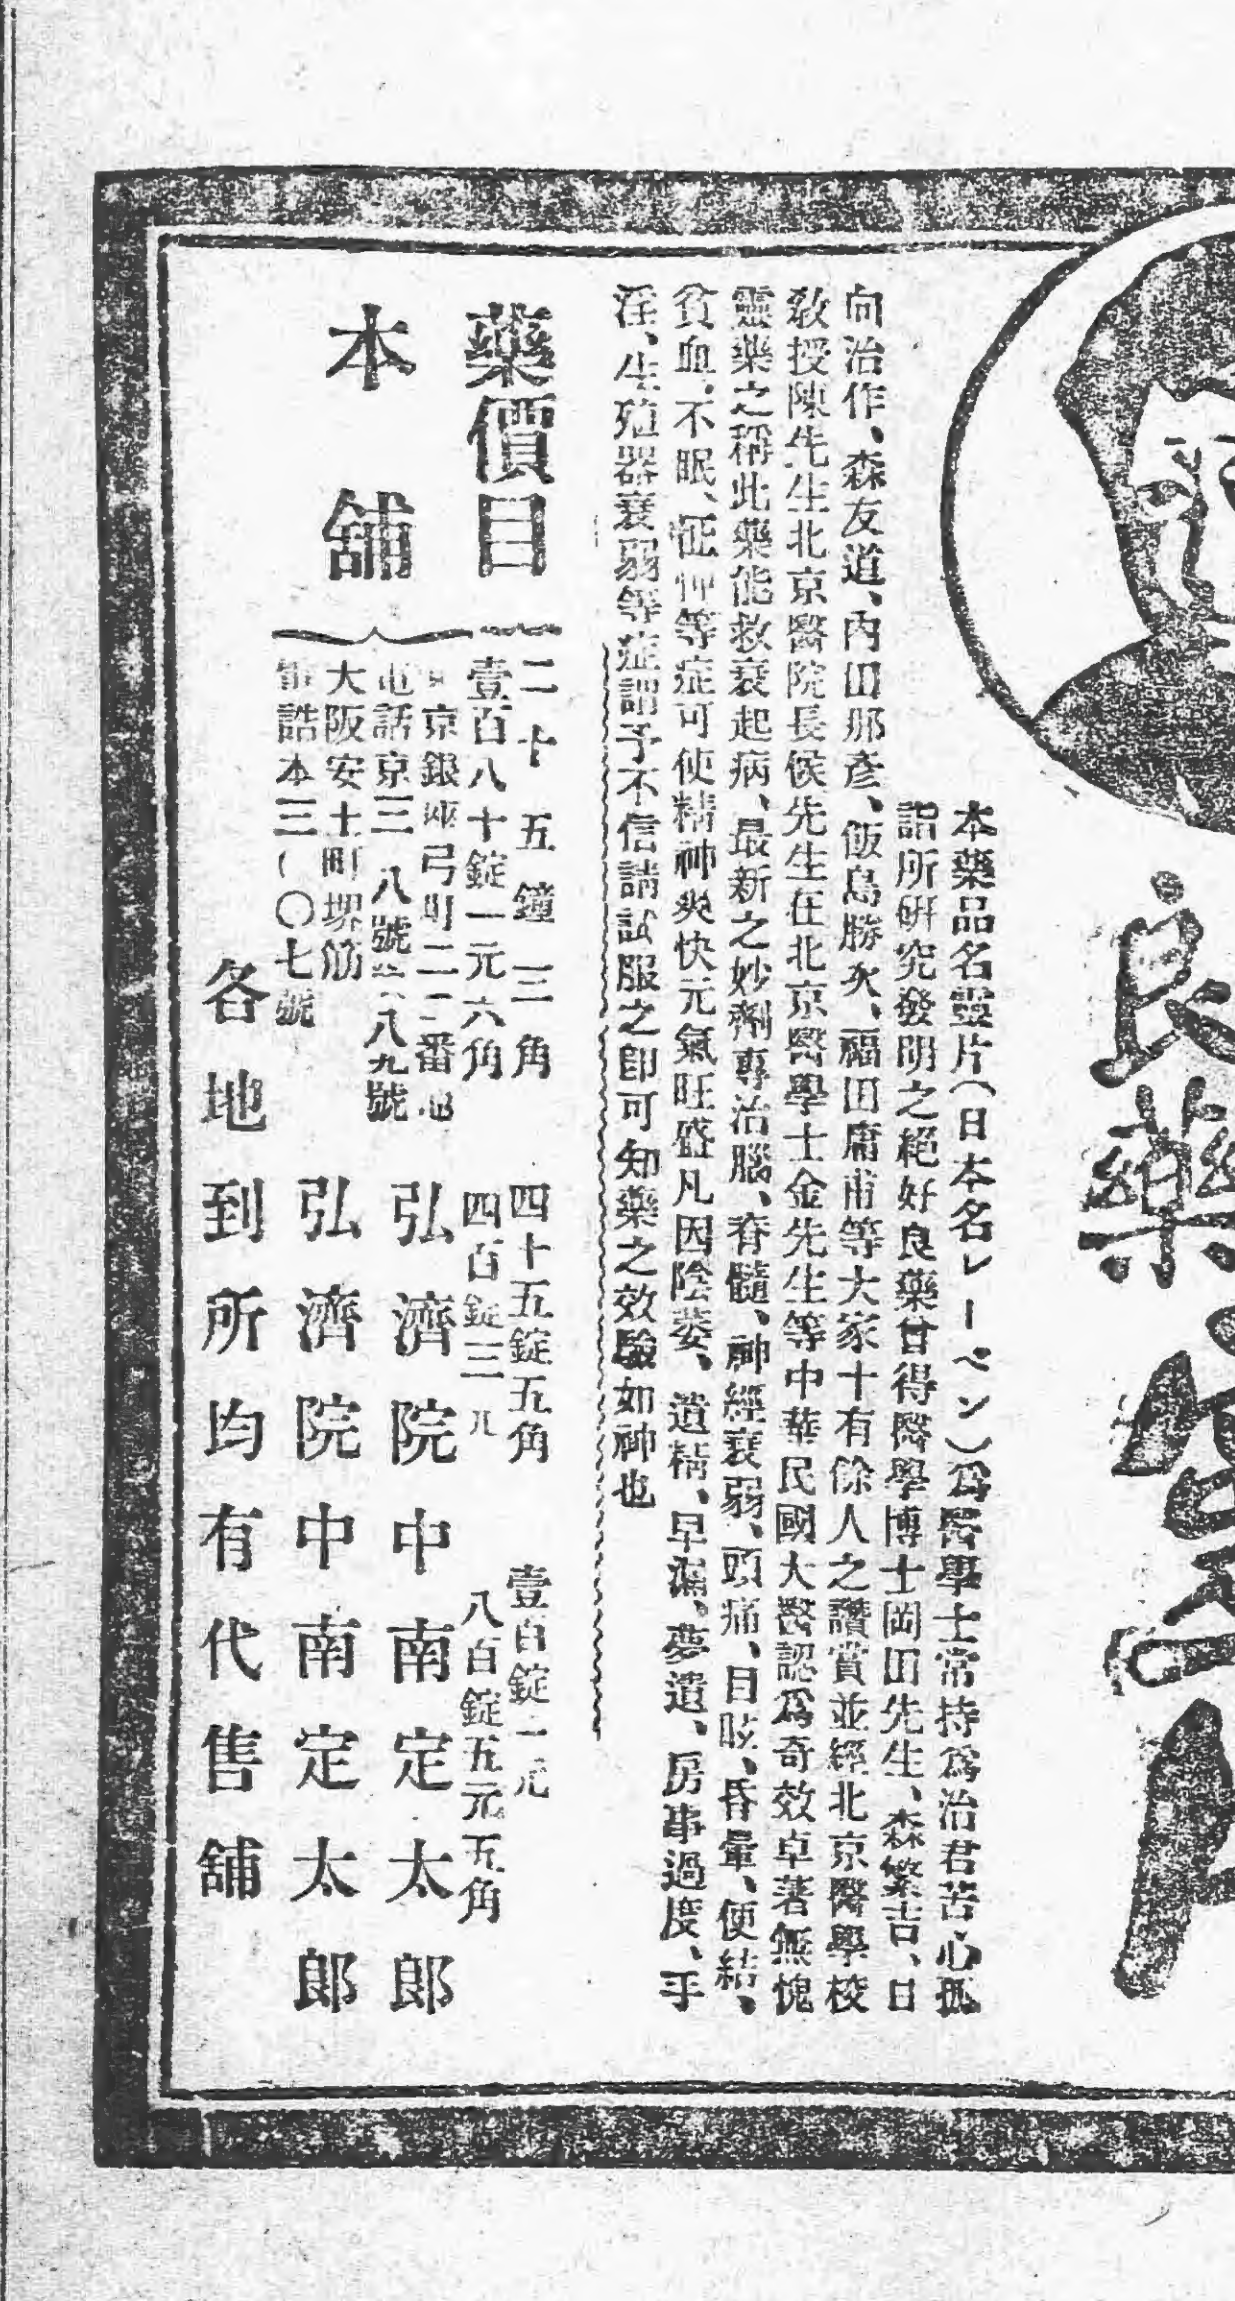 良藥
本藥品名靈片(日本名レーベン)爲醫學士常持爲治君苦心孤
詣所硏究發明之絕好良藥曾得醫學博士岡田先生、森繁吉、日
向治作、森友道、內田那彥、飯島勝次、福田庸甫等大家十有餘人之讚賞並經北京醫學校
敎授陳先生北京醫院長侯先生在北京醫學士金先生等中華民國大醫認爲奇效卓著無愧
靈藥之稱此藥能救衰起病、最新之妙劑專治腦、脊髓、神經衰弱、頭痛、目眩、昏暈、便結、
貧血、不眠、怔忡等症可使精神爽快元氣旺盛凡因陰萎、遺精、早漏、夢遺、房事過度、手
淫、生殖器衰弱等症謂予不信請試服之卽可知藥之效驗如神也
藥價目
二十五鐘三角 四十五錠五角 壹百錠一元
壹百八十錠一元六角 四百錠三 八百錠五元五角
本舖
京銀座弓町二二番地 弘濟院中南定太郎
電話京三 八號 八九號
大阪安土町堺筋 弘濟院中南定太郎
電話本三 〇七號
各地到所均有代售舖